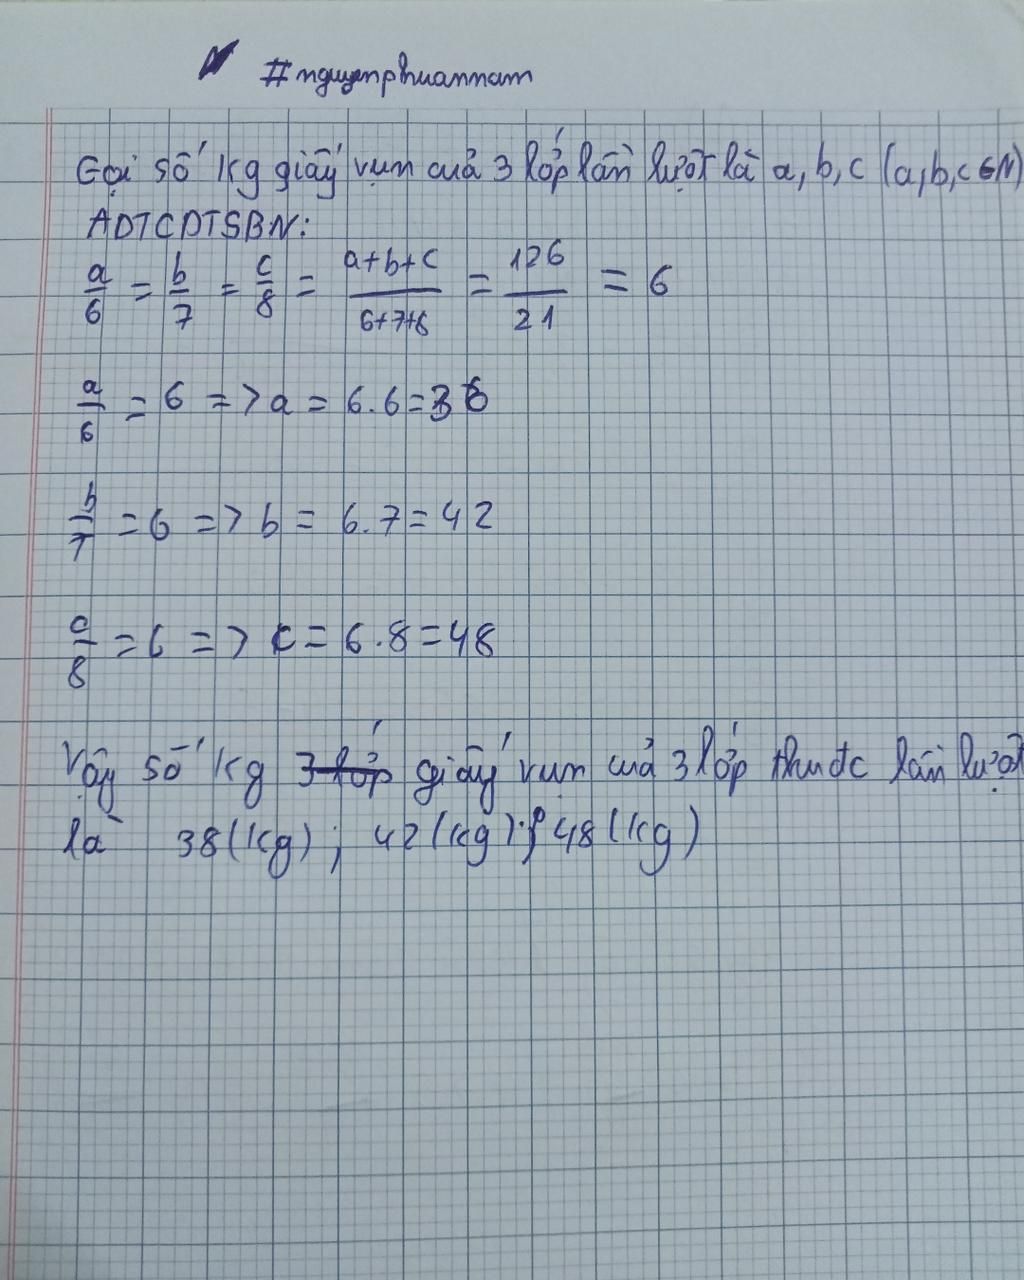 #nguyenphuannam
Gọi số kg giấy vụn của 3 lớp lần lượt là a, b, c (a,b,c ∈ N)
ADTCDTSBN:
a/6 = b/7 = c/8 = (a+b+c)/(6+7+8) = 126/21 = 6
a/6 = 6 => a = 6.6 = 36
b/7 = 6 => b = 6.7 = 42
c/8 = 6 => c = 6.8 = 48
Vậy số kg 3 lớp giấy vụn của 3 lớp lần lượt
là 38(kg); 42(kg); 48(kg)